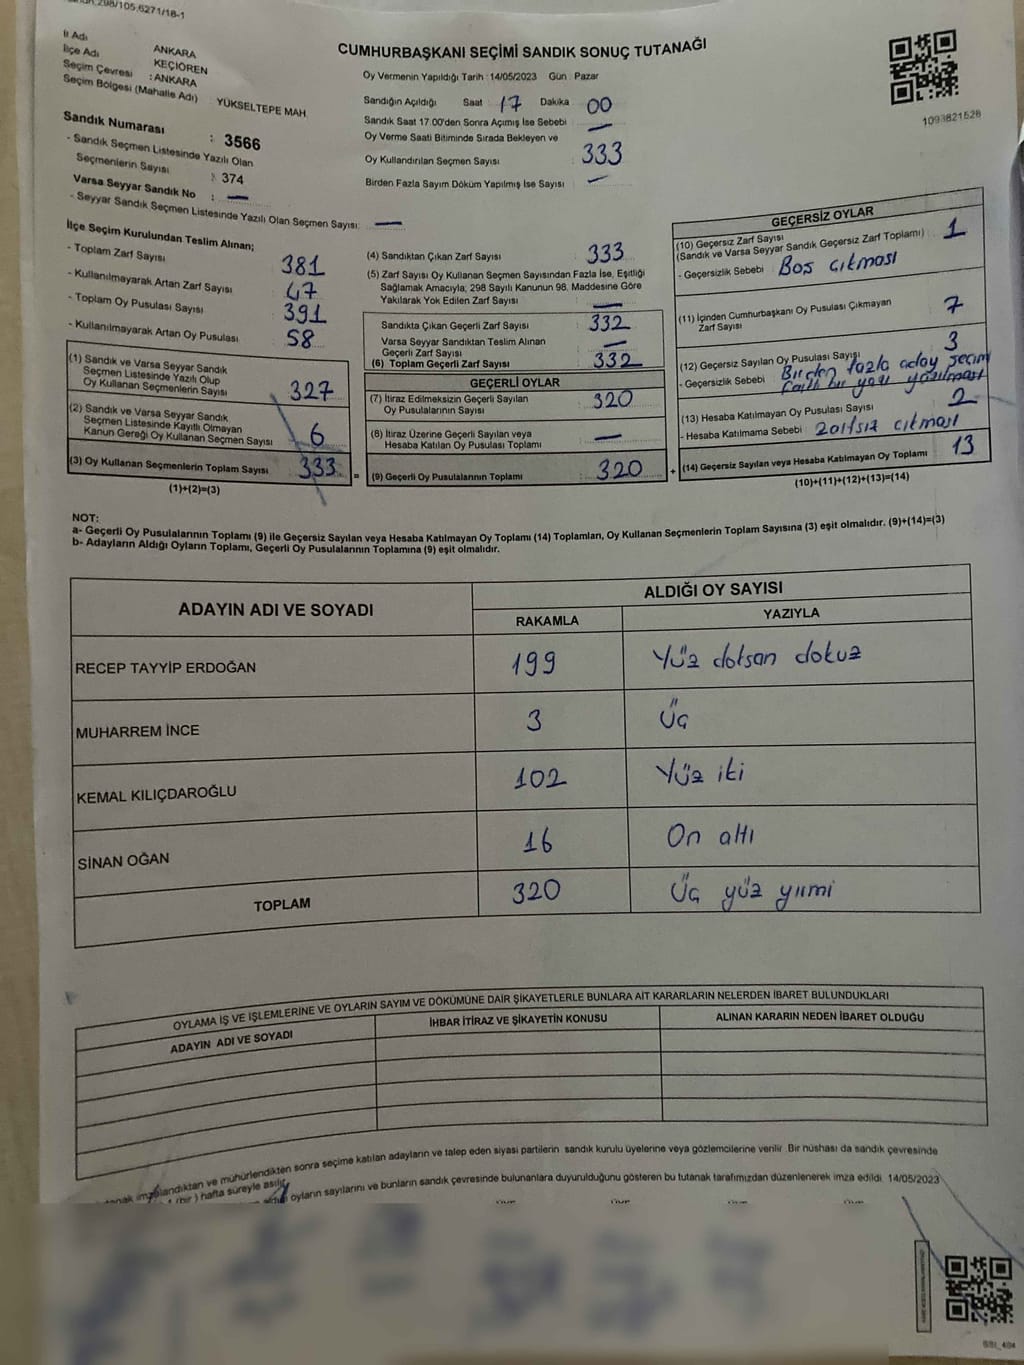 298/105,6271/18-1
İl Adı ANKARA
İlçe Adı KEÇİÖREN
Seçim Çevresi : ANKARA
Seçim Bölgesi (Mahalle Adı) : YÜKSELTEPE MAH.
Sandık Numarası : 3566
- Sandık Seçmen Listesinde Yazılı Olan
Seçmenlerin Sayısı : 374
Varsa Seyyar Sandık No : —
- Seyyar Sandık Seçmen Listesinde Yazılı Olan Seçmen Sayısı: —
CUMHURBAŞKANI SEÇİMİ SANDIK SONUÇ TUTANAĞI
Oy Vermenin Yapıldığı Tarih : 14/05/2023 Gün : Pazar
Sandığın Açıldığı Saat 17 Dakika 00
Sandık Saat 17.00'den Sonra Açımış İse Sebebi —
Oy Verme Saati Bitiminde Sırada Bekleyen ve
Oy Kullandırılan Seçmen Sayısı : 333
Birden Fazla Sayım Döküm Yapılmış İse Sayısı : —
1093821528
İlçe Seçim Kurulundan Teslim Alınan;
- Toplam Zarf Sayısı 381
- Kullanılmayarak Artan Zarf Sayısı 47
- Toplam Oy Pusulası Sayısı 391
- Kullanılmayarak Artan Oy Pusulası 58
(1) Sandık ve Varsa Seyyar Sandık
Seçmen Listesinde Yazılı Olup
Oy Kullanan Seçmenlerin Sayısı 327
(2) Sandık ve Varsa Seyyar Sandık
Seçmen Listesinde Kayıtlı Olmayan
Kanun Gereği Oy Kullanan Seçmen Sayısı 6
(3) Oy Kullanan Seçmenlerin Toplam Sayısı 333 =
(1)+(2)=(3)
(4) Sandıktan Çıkan Zarf Sayısı 333
(5) Zarf Sayısı Oy Kullanan Seçmen Sayısından Fazla İse, Eşitliği
Sağlamak Amacıyla; 298 Sayılı Kanunun 98. Maddesine Göre
Yakılarak Yok Edilen Zarf Sayısı : —
Sandıkta Çıkan Geçerli Zarf Sayısı : 332
Varsa Seyyar Sandıktan Teslim Alınan
Geçerli Zarf Sayısı —
(6) Toplam Geçerli Zarf Sayısı : 332
GEÇERLİ OYLAR
(7) İtiraz Edilmeksizin Geçerli Sayılan
Oy Pusulalarının Sayısı : 320
(8) İtiraz Üzerine Geçerli Sayılan veya
Hesaba Katılan Oy Pusulası Toplamı —
(9) Geçerli Oy Pusulalarının Toplamı : 320 +
GEÇERSİZ OYLAR
(10) Geçersiz Zarf Sayısı
(Sandık ve Varsa Seyyar Sandık Geçersiz Zarf Toplamı) 1
- Geçersizlik Sebebi : Boş çıkması
(11) İçinden Cumhurbaşkanı Oy Pusulası Çıkmayan
Zarf Sayısı 7
(12) Geçersiz Sayılan Oy Pusulası Sayısı 3
- Geçersizlik Sebebi Birden fazla aday seçim
bir yazı yazılması
(13) Hesaba Katılmayan Oy Pusulası Sayısı 2
- Hesaba Katılmama Sebebi : zarfsız çıkması
(14) Geçersiz Sayılan veya Hesaba Katılmayan Oy Toplamı 13
(10)+(11)+(12)+(13)=(14)
NOT:
a- Geçerli Oy Pusulalarının Toplamı (9) ile Geçersiz Sayılan veya Hesaba Katılmayan Oy Toplamı (14) Toplamları, Oy Kullanan Seçmenlerin Toplam Sayısına (3) eşit olmalıdır. (9)+(14)=(3)
b- Adayların Aldığı Oyların Toplamı, Geçerli Oy Pusulalarının Toplamına (9) eşit olmalıdır.
ADAYIN ADI VE SOYADI ALDIĞI OY SAYISI
RAKAMLA YAZIYLA
RECEP TAYYİP ERDOĞAN 199 Yüz doksan dokuz
MUHARREM İNCE 3 Üç
KEMAL KILIÇDAROĞLU 102 Yüz iki
SİNAN OĞAN 16 On altı
TOPLAM 320 Üç yüz yirmi
OYLAMA İŞ VE İŞLEMLERİNE VE OYLARIN SAYIM VE DÖKÜMÜNE DAİR ŞİKAYETLERLE BUNLARA AİT KARARLARIN NELERDEN İBARET BULUNDUKLARI
ADAYIN ADI VE SOYADI İHBAR İTİRAZ VE ŞİKAYETİN KONUSU ALINAN KARARIN NEDEN İBARET OLDUĞU
imzalandıktan ve mühürlendikten sonra seçime katılan adayların ve talep eden siyasi partilerin sandık kurulu üyelerine veya gözlemcilerine verilir. Bir nüshası da sandık çevresinde
(bir) hafta süreyle asılır.
oyların sayılarını ve bunların sandık çevresinde bulunanlara duyurulduğunu gösteren bu tutanak tarafımızdan düzenlenerek imza edildi. 14/05/2023